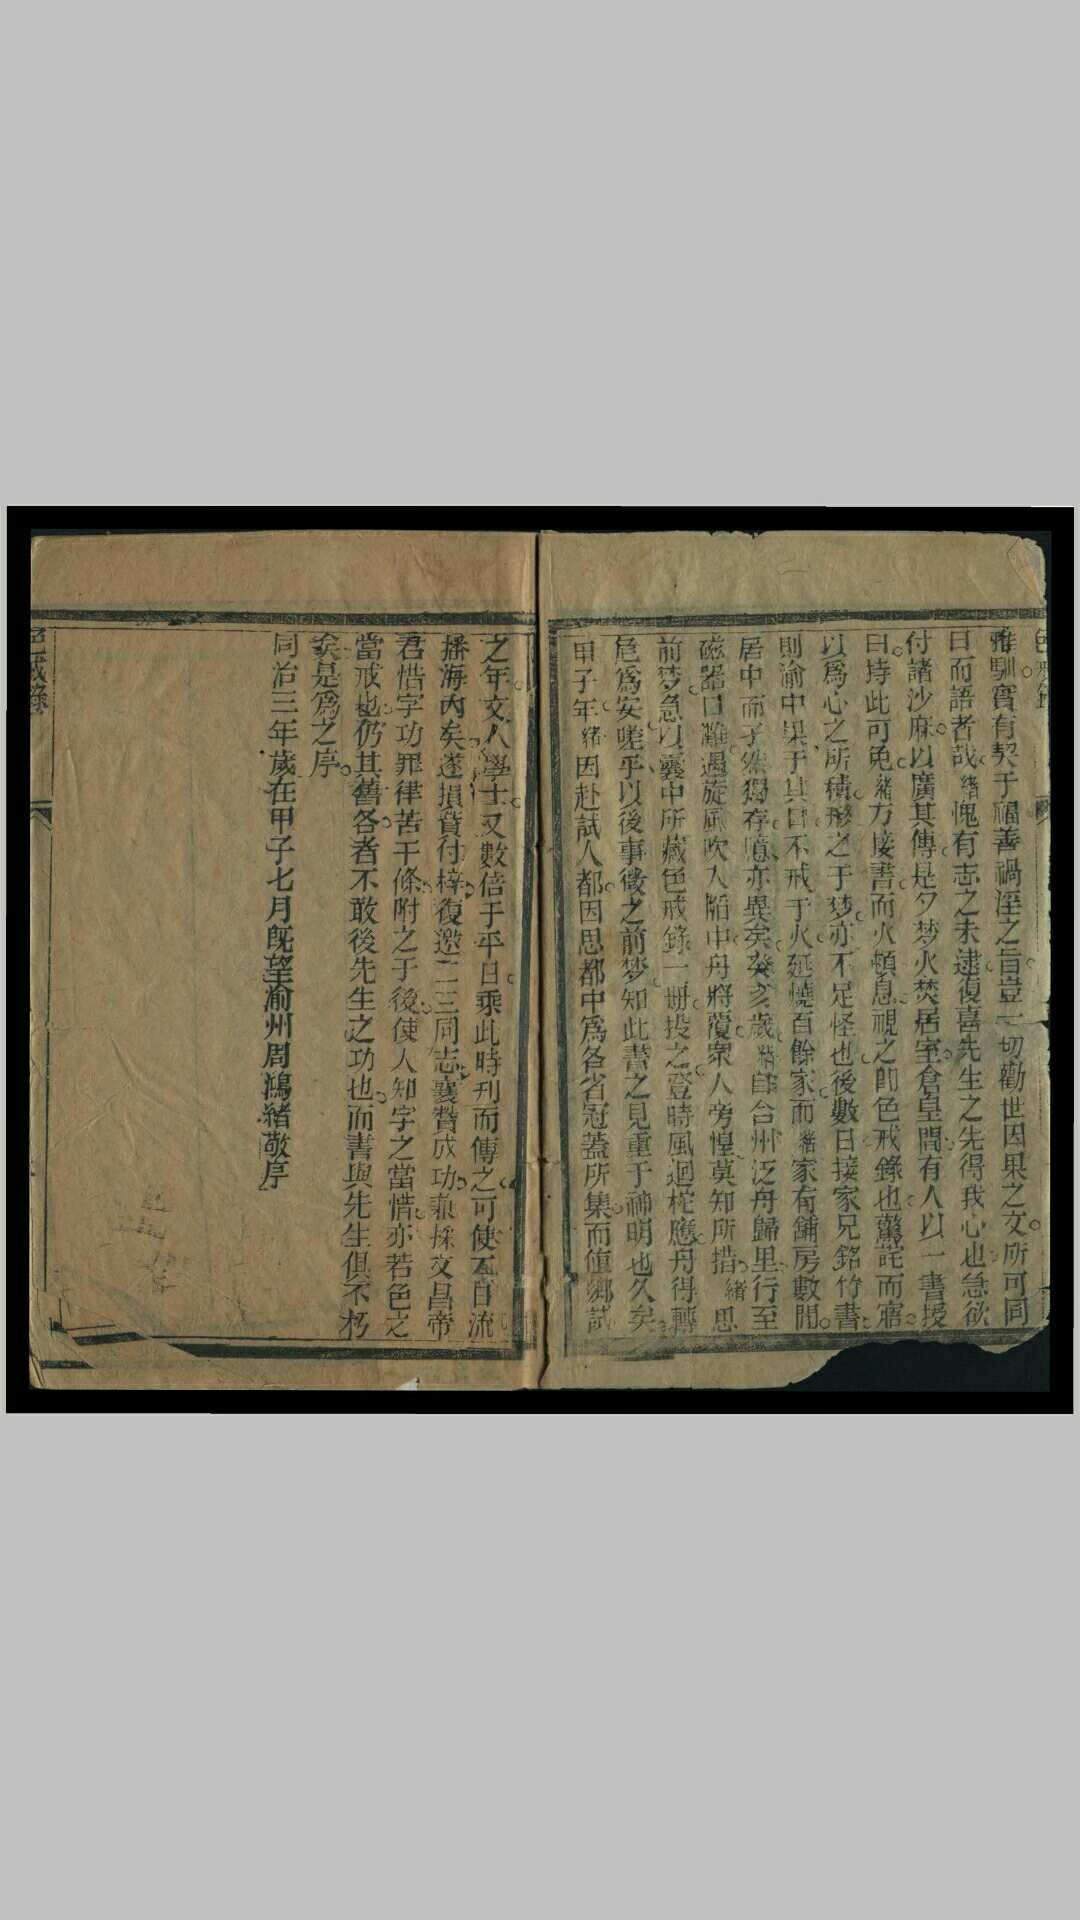 雅馴實有契于福善禍淫之旨豈一切勸世因果之文所可同
日而語者哉緒愧有志之未逮復喜先生之先得我心也急欲
付諸沙麻以廣其傳是夕梦火焚居室倉皇間有人以一書授
曰持此可免緒方接書而火頓息視之即色戒錄也驚詫而寤
以爲心之所積形之于梦亦不足怪也後數日接家兄銘竹書
則渝中果于其日不戒于火延燒百餘家而緒家有舖房數間
居中而孑然獨存噫亦異矣癸亥歲緒自台州泛舟歸里行至
磁器口灘遇旋風吹入陷中舟將覆衆人旁惶莫知所措緒思
前梦急以囊中所藏色戒錄一冊投之登時風迴柁應舟得轉
危爲安嗟乎以後事徵之前梦知此書之見重于神明也久矣
甲子年緒因赴試入都因思都中爲各省冠蓋所集而値鄉試
之年文人學士又數倍于平日乘此時刊而傳之可使互自流
播海內矣遂損貲付梓復邀二三同志襄贊成功兼採文昌帝
君惜字功罪律若干條附之于後使人知字之當惜亦若色之
當戒也仍其舊名者不敢後先生之功也而書與先生俱不朽
矣是爲之序
同治三年歲在甲子七月旣望渝州周鴻緒敬序
色戒錄